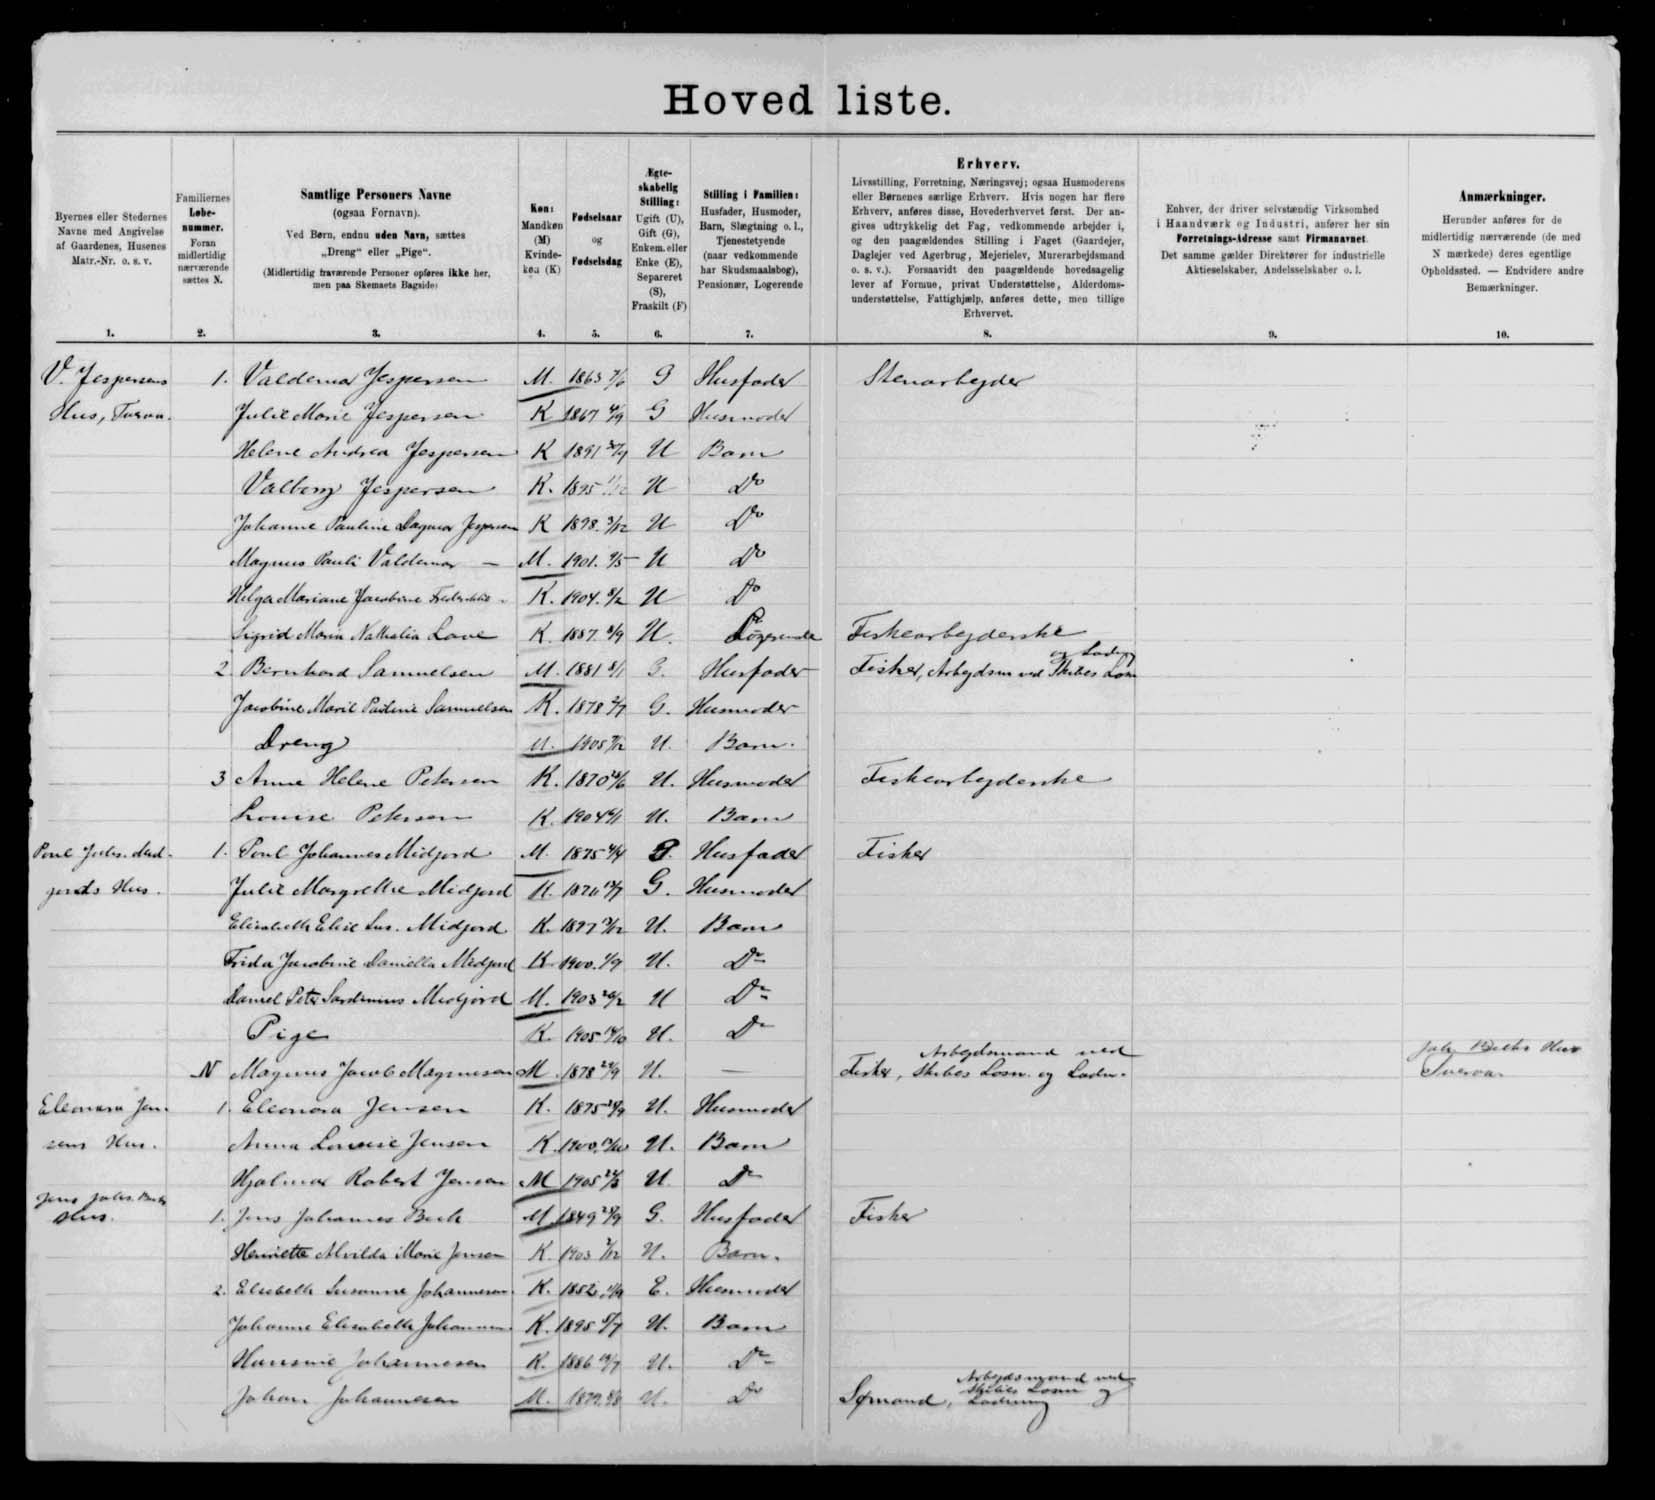 Hoved liste.
Byernes eller Stedernes
Navne med Angivelse
af Gaardenes, Husenes
Matr.-Nr. o. s. v.
1.
Familiernes
Løbe-
nummer.
Foran
midlertidig
nærværende
sættes N.
2.
Samtlige Personers Navne
(ogsaa Fornavn).
Ved Børn, endnu uden Navn, sættes
„Dreng“ eller „Pige“.
(Midlertidig fraværende Personer opføres ikke her,
men paa Skemaets Bagside)
3.
Køn:
Mandkøn
(M)
Kvinde-
køn (K)
4.
Fødselsaar
og
Fødselsdag
5.
Ægte-
skabelig
Stilling:
Ugift (U),
Gift (G),
Enkem. eller
Enke (E),
Separeret
(S),
Fraskilt (F)
6.
Stilling i Familien:
Husfader, Husmoder,
Barn, Slægtning o. l.,
Tjenestetyende
(naar vedkommende
har Skudsmaalsbog),
Pensionær, Logerende
7.
Erhverv.
Livsstilling, Forretning, Næringsvej; ogsaa Husmoderens
eller Børnenes særlige Erhverv. Hvis nogen har flere
Erhverv, anføres disse, Hovederhvervet først. Der an-
gives udtrykkelig det Fag, vedkommende arbejder i,
og den paagældendes Stilling i Faget (Gaardejer,
Daglejer ved Agerbrug, Mejerielev, Murerarbejdsmand
o. s. v.). Forsaavidt den paagældende hovedsagelig
lever af Formue, privat Understøttelse, Alderdoms-
understøttelse, Fattighjælp, anføres dette, men tillige
Erhvervet.
8.
Enhver, der driver selvstændig Virksomhed
i Haandværk og Industri, anfører her sin
Forretnings-Adresse samt Firmanavnet.
Det samme gælder Direktører for industrielle
Aktieselskaber, Andelsselskaber o. l.
9.
Anmærkninger.
Herunder anføres for de
midlertidig nærværende (de med
N mærkede) deres egentlige
Opholdssted. — Endvidere andre
Bemærkninger.
10.
V. Jespersens 1. Valdemar Jespersen M. 1863 7/6 G Husfader Stenarbejder
Hus, Julie Marie Jespersen K 1867 G Husmoder
Helene Andrea Jespersen K 1891 U Barn
Valborg Jespersen K. 1895 U Do
Johanne Pauline Dagmar Jespersen K 1898. 3/12 U Do
Magnus Pauli Valdemar — M. 1901. 9/5 U Do
Helga Mariane Jacobine K. 1904. 8/2 U Do
Sigrid Maria Nathalia K. 1887. 8/9 U. Logerende Fiskearbejderske
2 Bernhard Samuelsen M. 1881 8/1 G. Husfader Fisker, Arbejdsm ved Skibes Losn
Jacobine Marie Pauline Samuelsen K. 1878 G. Husmoder
Dreng M. 1905 U. Barn.
3 Anne Helene Petersen K. 1870 U. Husmoder Fiskearbejderske
Louise Petersen K. 1904 U. Barn
1. Poul Johannes Midjord M. 1875 G. Husfader Fisker
jords Hus. Julie Margrethe Midjord K. G. Husmoder
Elisabeth Elise Sus. Midjord K. 1897 U. Barn
Frida Jacobine Daniella Midjord K 1900. 1/9 U. Do
Daniel Peter Midjord M. 1903 U Do
Pige K. 1905 U. Do
N Magnus Jacob Magnusen M. 1878 U. — Fisker, Arbejdsmand ved Skibes Losn. og Ladn.
Eleonora Jen- 1. Eleonora Jensen K. 1875 U. Husmoder
sens Hus. Anna Louise Jensen K. 1900. U. Barn
Hjalmar Robert Jensen M 1905 U. Do
Jens Johs.
Hus. 1. Jens Johannes M. 1849 G. Husfader Fisker
Henriette Alvilda Marie Jensen K. 1903 U. Barn.
2. Elsebeth Susanne Johannesen. K. 1852. E. Husmoder
Johanne Elisabeth K. 1895 U. Barn
Hansine Johannesen K. 1886 U. Do
Johan Johannesen M. 1879. U. Do Sømand, Arbejdsmand ved Skibes Losn og Ladning